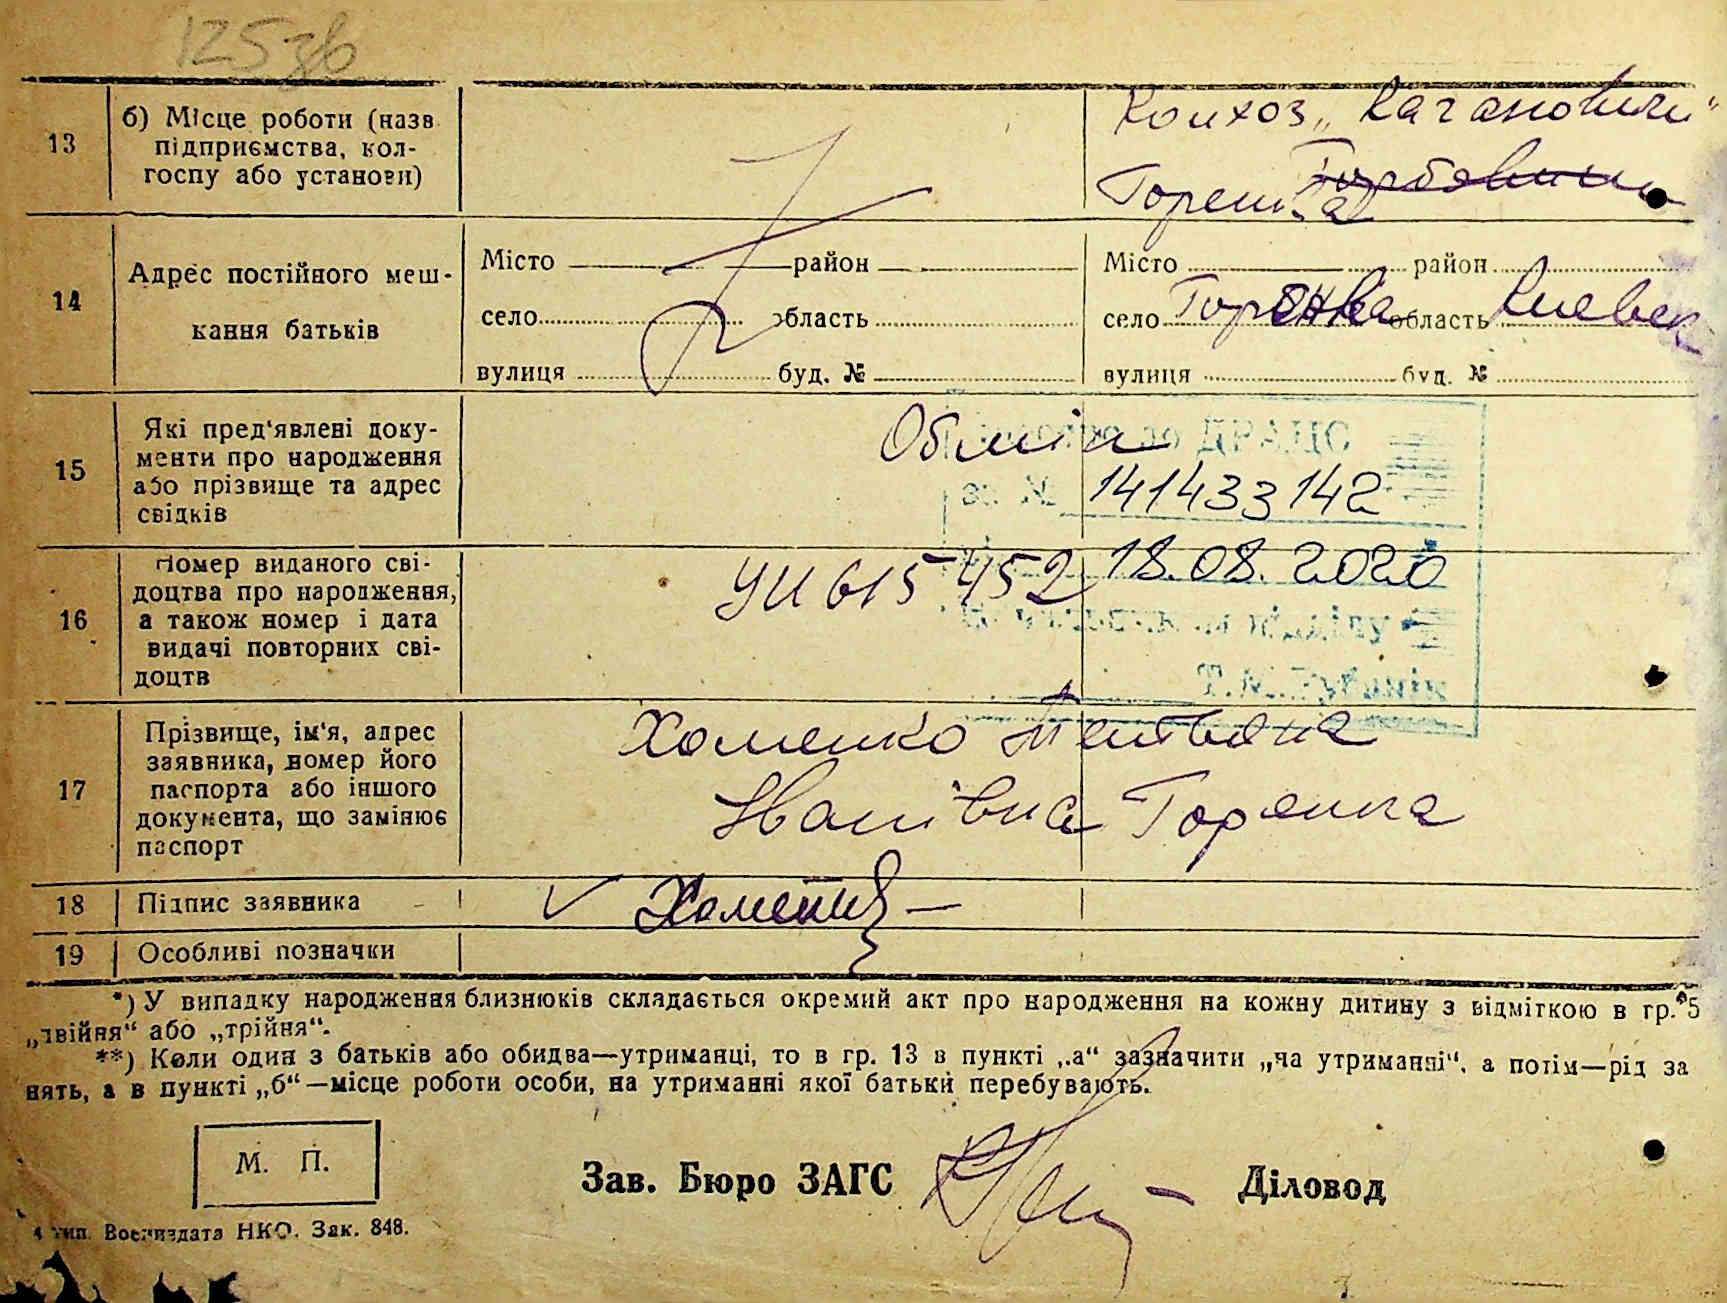 125 зв
13
б) Місце роботи (назв
підприємства, кол-
госпу або установи)
Колхоз „Кагановичи“
Горбовичи
Горенка
14
Адрес постійного меш-
кання батьків
Місто район
село область
вулиця буд. №
Місто район
село Горенка область Киевск
вулиця буд. №
15
Які пред'явлені доку-
менти про народження
або прізвище та адрес
свідків
Обмін
ДРАЦС
за № 141433142
16
Номер виданого сві-
доцтва про народження,
а також номер і дата
видачі повторних сві-
доцтв
УИ 615452
18.08.2020
відділу
17
Прізвище, ім'я, адрес
заявника, номер його
паспорта або іншого
документа, що замінює
паспорт
Хоменко Татьяна
Іванівна Горенка
18
Підпис заявника
Хоменко
19
Особливі позначки
*) У випадку народження близнюків складається окремий акт про народження на кожну дитину з відміткою в гр. 5
„двійня“ або „трійня“.
**) Коли один з батьків або обидва—утриманці, то в гр. 13 в пункті „а“ зазначити „на утриманні“, а потім—рід за
нять, а в пункті „б“—місце роботи особи, на утриманні якої батьки перебувають.
М. П.
Зав. Бюро ЗАГС
Діловод
4 тип. Воениздата НКО. Зак. 848.